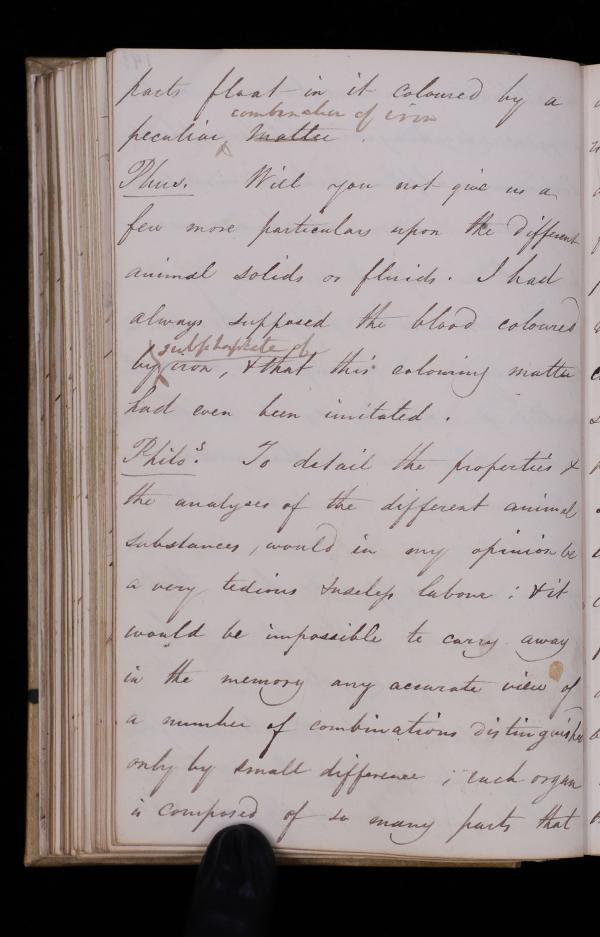 parts float in it coloured by a
combination of iron
peculiar matter.
Phus. Will you not give us a
few more particulars upon the different
animal solids or fluids. I had
always supposed the blood coloured
subphosphate of
by iron, & that this colouring matter
had even been imitated.
Philos. To detail the properties &
the analyses of the different animal
substances, would in my opinion be
a very tedious & useless labour; & it
would be impossible to carry away
in the memory any accurate view of
a number of combinations distinguished
only by small difference; each organ
is composed of so many parts that